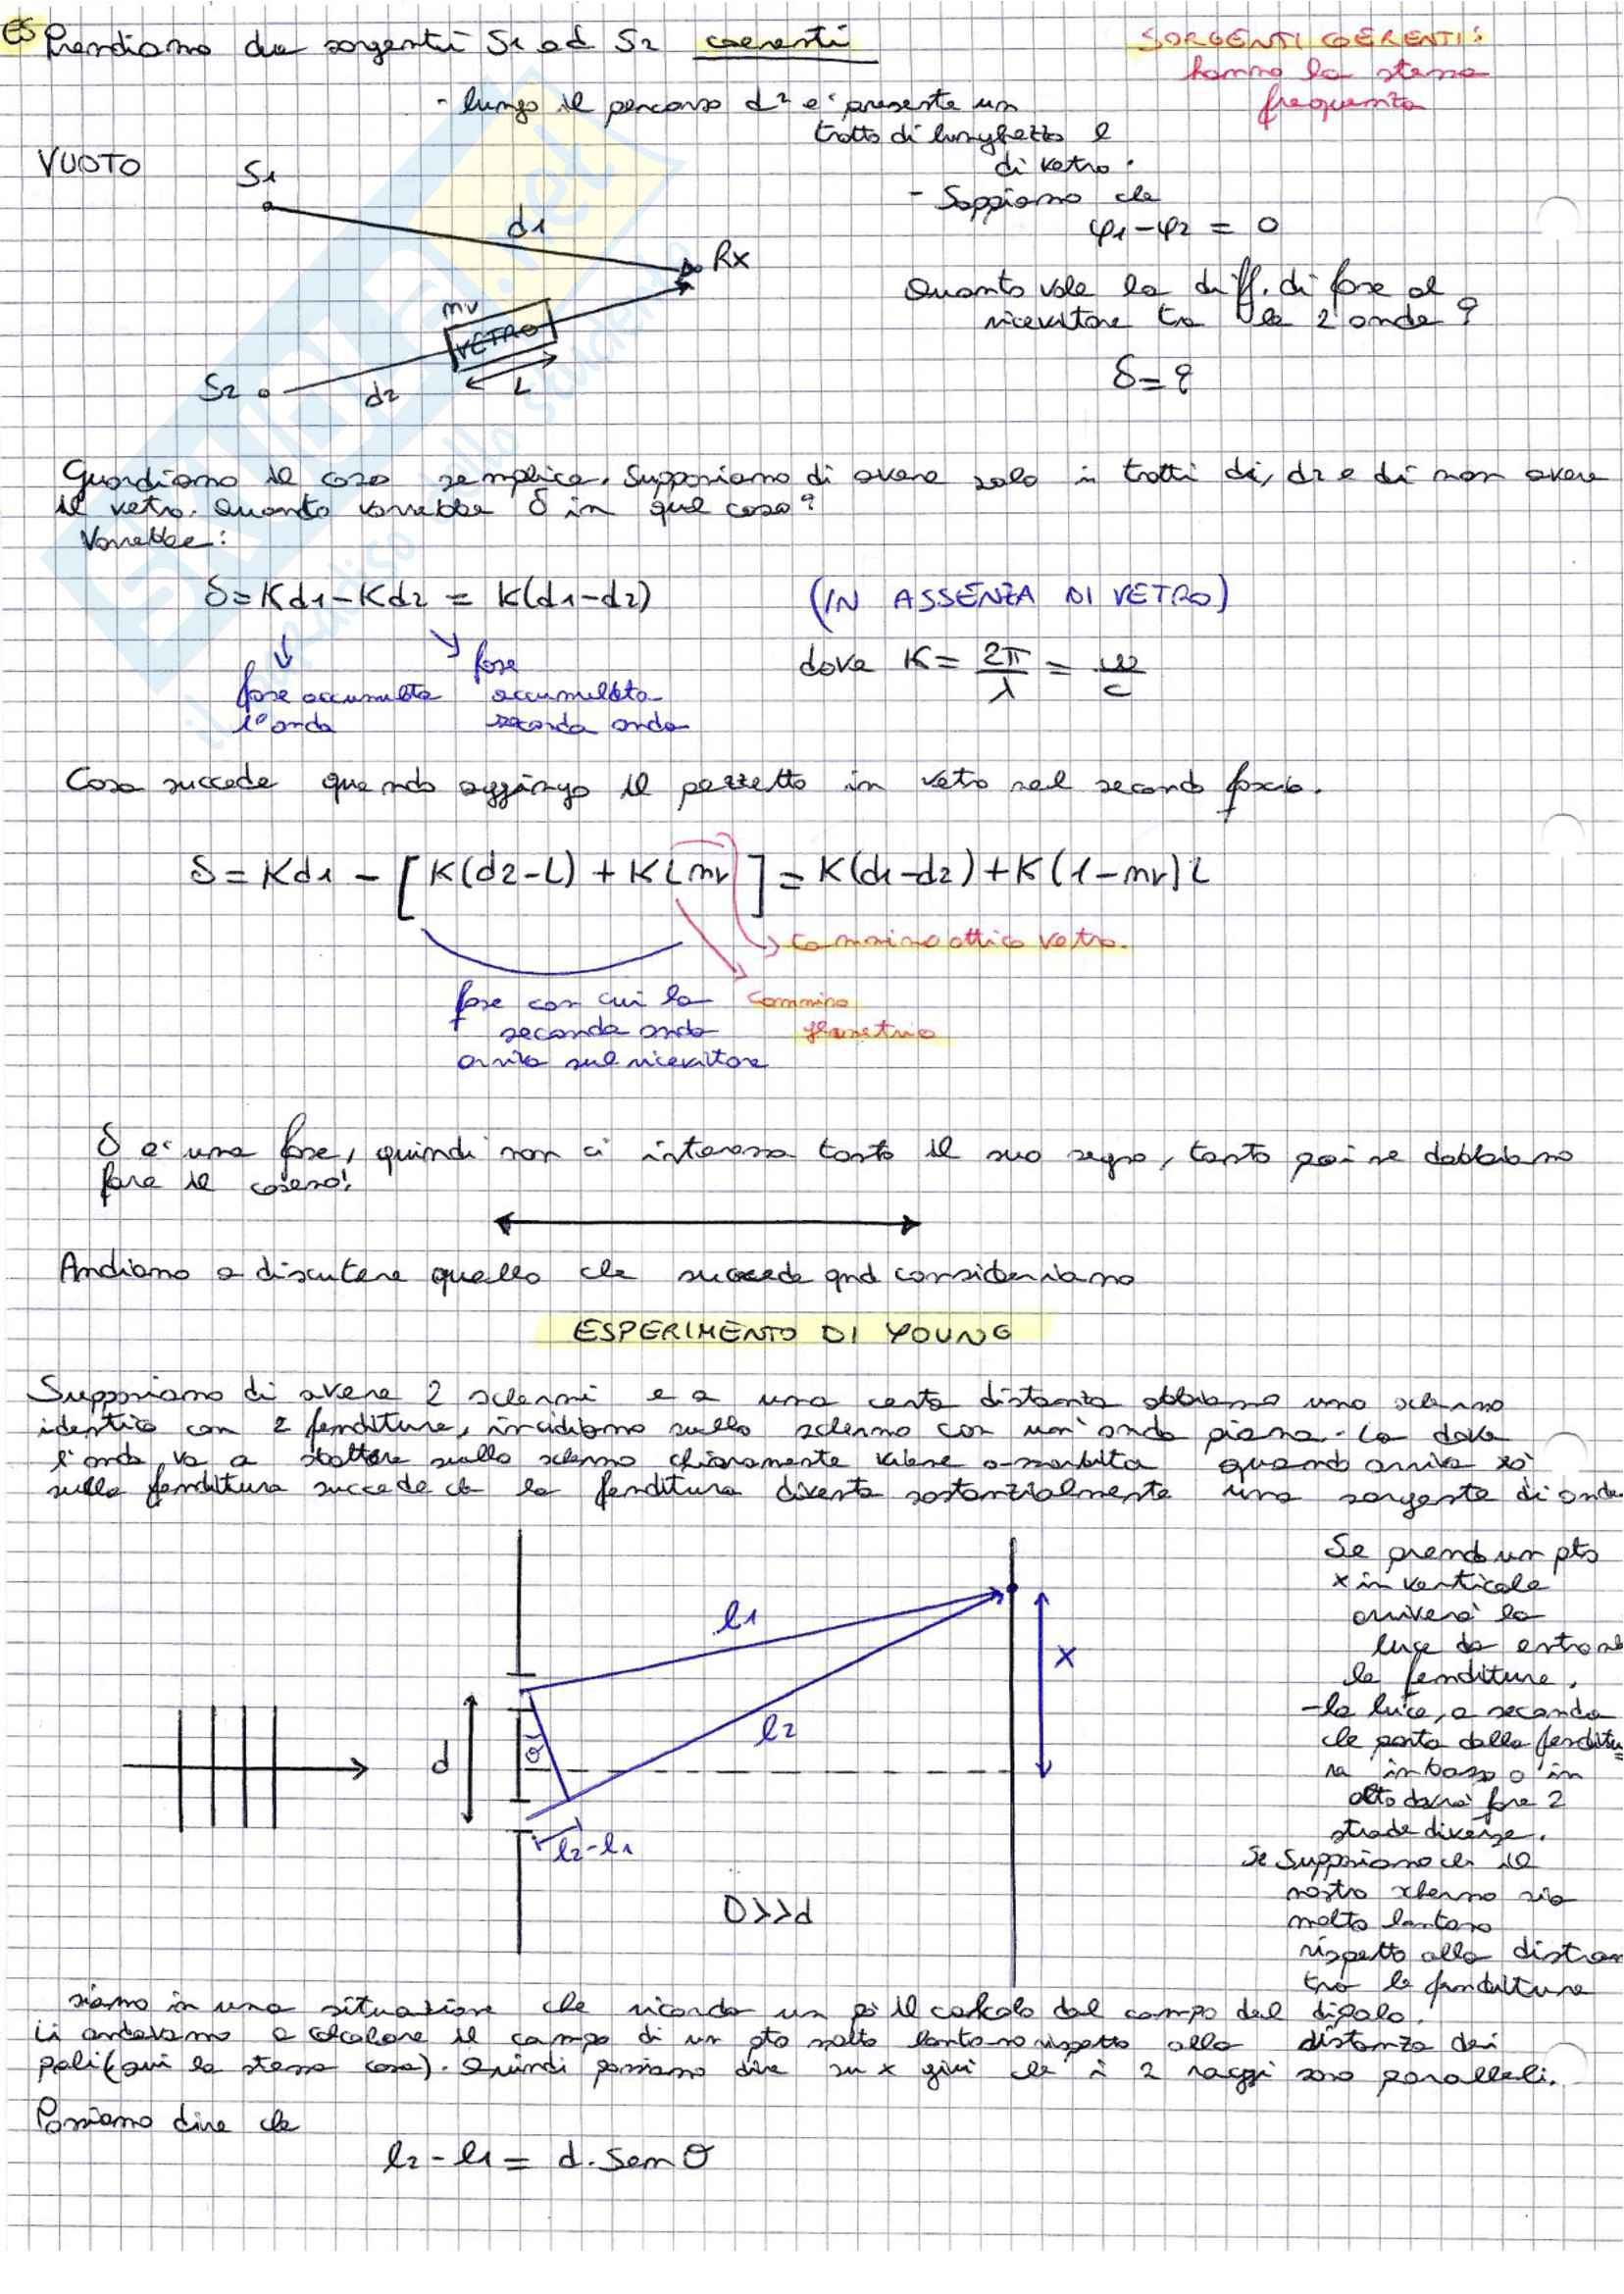 ES Prendiamo due sorgenti S1 ed S2 coerenti
SORGENTI COERENTI:
hanno la stessa
frequenza
- lungo il percorso d2 e' presente un
tratto di lunghezza l
di vetro.
VUOTO
S1
- Sappiamo che
φ1-φ2 = 0
d1
Rx
Quanto vale la diff. di fase al
ricevitore tra le 2 onde?
nv
VETRO
L
S2
d2
δ=?
Guardiamo il caso semplice. Supponiamo di avere solo i tratti d1, d2 e di non avere
il vetro. Quanto varrebbe δ in quel caso?
Varrebbe:
δ=Kd1-Kd2 = K(d1-d2)
(IN ASSENZA DI VETRO)
dove K= 2π/λ = ω/c
fase accumulata
1° onda
fase
accumulata
seconda onda
Cosa succede quando aggiungo il pezzetto in vetro nel secondo fascio.
δ= Kd1 - [K(d2-L) + KLnv] = K(d1-d2)+K(1-nv)L
cammino ottico vetro.
fase con cui la
seconda onda
arriva sul ricevitore
cammino
geometrico
δ e' una fase, quindi non ci interessa tanto il suo segno, tanto poi ne dobbiamo
fare il coseno!
Andiamo a discutere quello che succede qnd consideriamo
ESPERIMENTO DI YOUNG
Supponiamo di avere 2 schermi e a una certa distanza abbiamo uno schermo
identico con 2 fenditure, incidiamo sullo schermo con un'onda piana. La dove
l'onda va a sbattere sullo schermo chiaramente viene assorbita quando arriva
sulla fenditura succede che la fenditura diventa sostanzialmente una sorgente di onde
l1
x
l2
d
θ
l2-l1
D>>d
Se prendo un pto
x in verticale
arriverà la
luce da entrambe
le fenditure.
-la luce, a seconda
che parta dalla fenditu=
ra in basso o in
alto dovrà fare 2
strade diverse.
Se Supponiamo che il
nostro schermo sia
molto lontano
rispetto alla distanza
tra le fenditure
siamo in una situazione che ricorda un pò il calcolo del campo del dipolo.
Li andavamo a calcolare il campo di un pto molto lontano rispetto alla distanza dei
poli (qui la stessa cosa). Quindi possiamo dire su x che i 2 raggi sono paralleli.
Possiamo dire che
l2-l1 = d. Sen θ